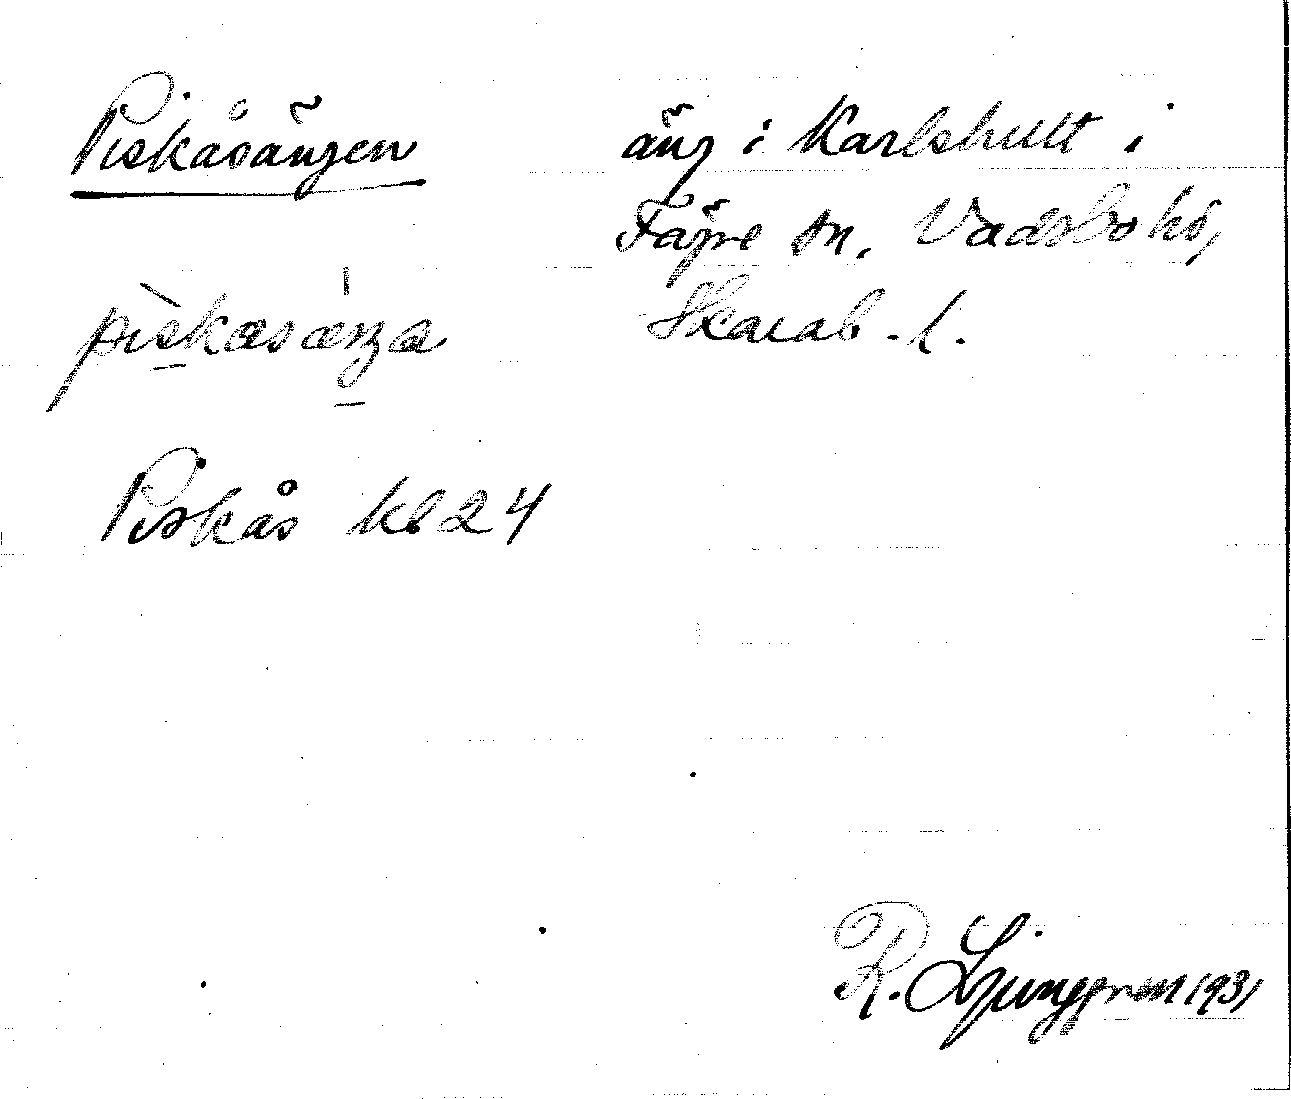 Piskåsängen
äng i Karlshult i
Fägre sn, Vadsbo hd,
Skarab. l.
Piskås kb 24
R. Ljunggren 1931